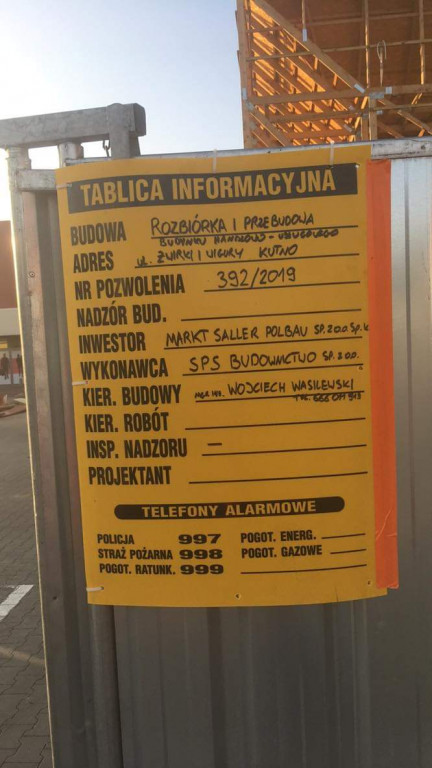 TABLICA INFORMACYJNA
BUDOWA ROZBIÓRKA I PRZEBUDOWA
BUDYNKU HANDLOWO - USŁUGOWEGO
ADRES ul. ŻWIRKI I WIGURY KUTNO
NR POZWOLENIA 392/2019
NADZÓR BUD.
INWESTOR MARKT SALLER POLBAU SP. Z O.O. Sp. k
WYKONAWCA SPS BUDOWNICTWO SP. Z O.O.
KIER. BUDOWY mgr inż. WOJCIECH WASILEWSKI
TEL.
KIER. ROBÓT
INSP. NADZORU –
PROJEKTANT
TELEFONY ALARMOWE
POLICJA 997 POGOT. ENERG.
STRAŻ POŻARNA 998 POGOT. GAZOWE
POGOT. RATUNK. 999